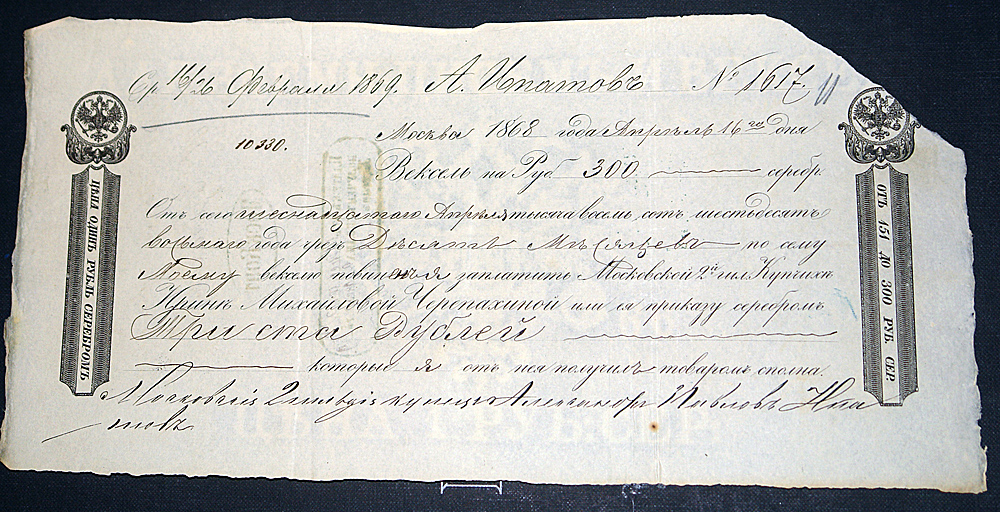 Ср. 16/26 Февраля 1869. А. Ипатовъ № 1617.
Москва 1868 года Апрѣль 16го дня
10330.
Вексель на Руб 300 серебр.
Отъ сего шеснадцатого Апрѣля тысяча восемь сотъ шестьдесятъ
восьмаго года чрезъ Десять Мѣсяцевъ по сему
моему векселю повиненъ я заплатить Московской 2й гил. Купчихѣ
Михайловой Черепахиной или ея приказу серебромъ
Триста Рублей
которые я отъ нея получилъ товаромъ сполна.
Московскій 2 гильдіи купецъ Александръ Павловъ Ипа
товъ
ЦѢНА ОДИНЪ РУБЛЬ СЕРЕБРОМЪ
ОТЪ 151 ДО 300 РУБ. СЕР.